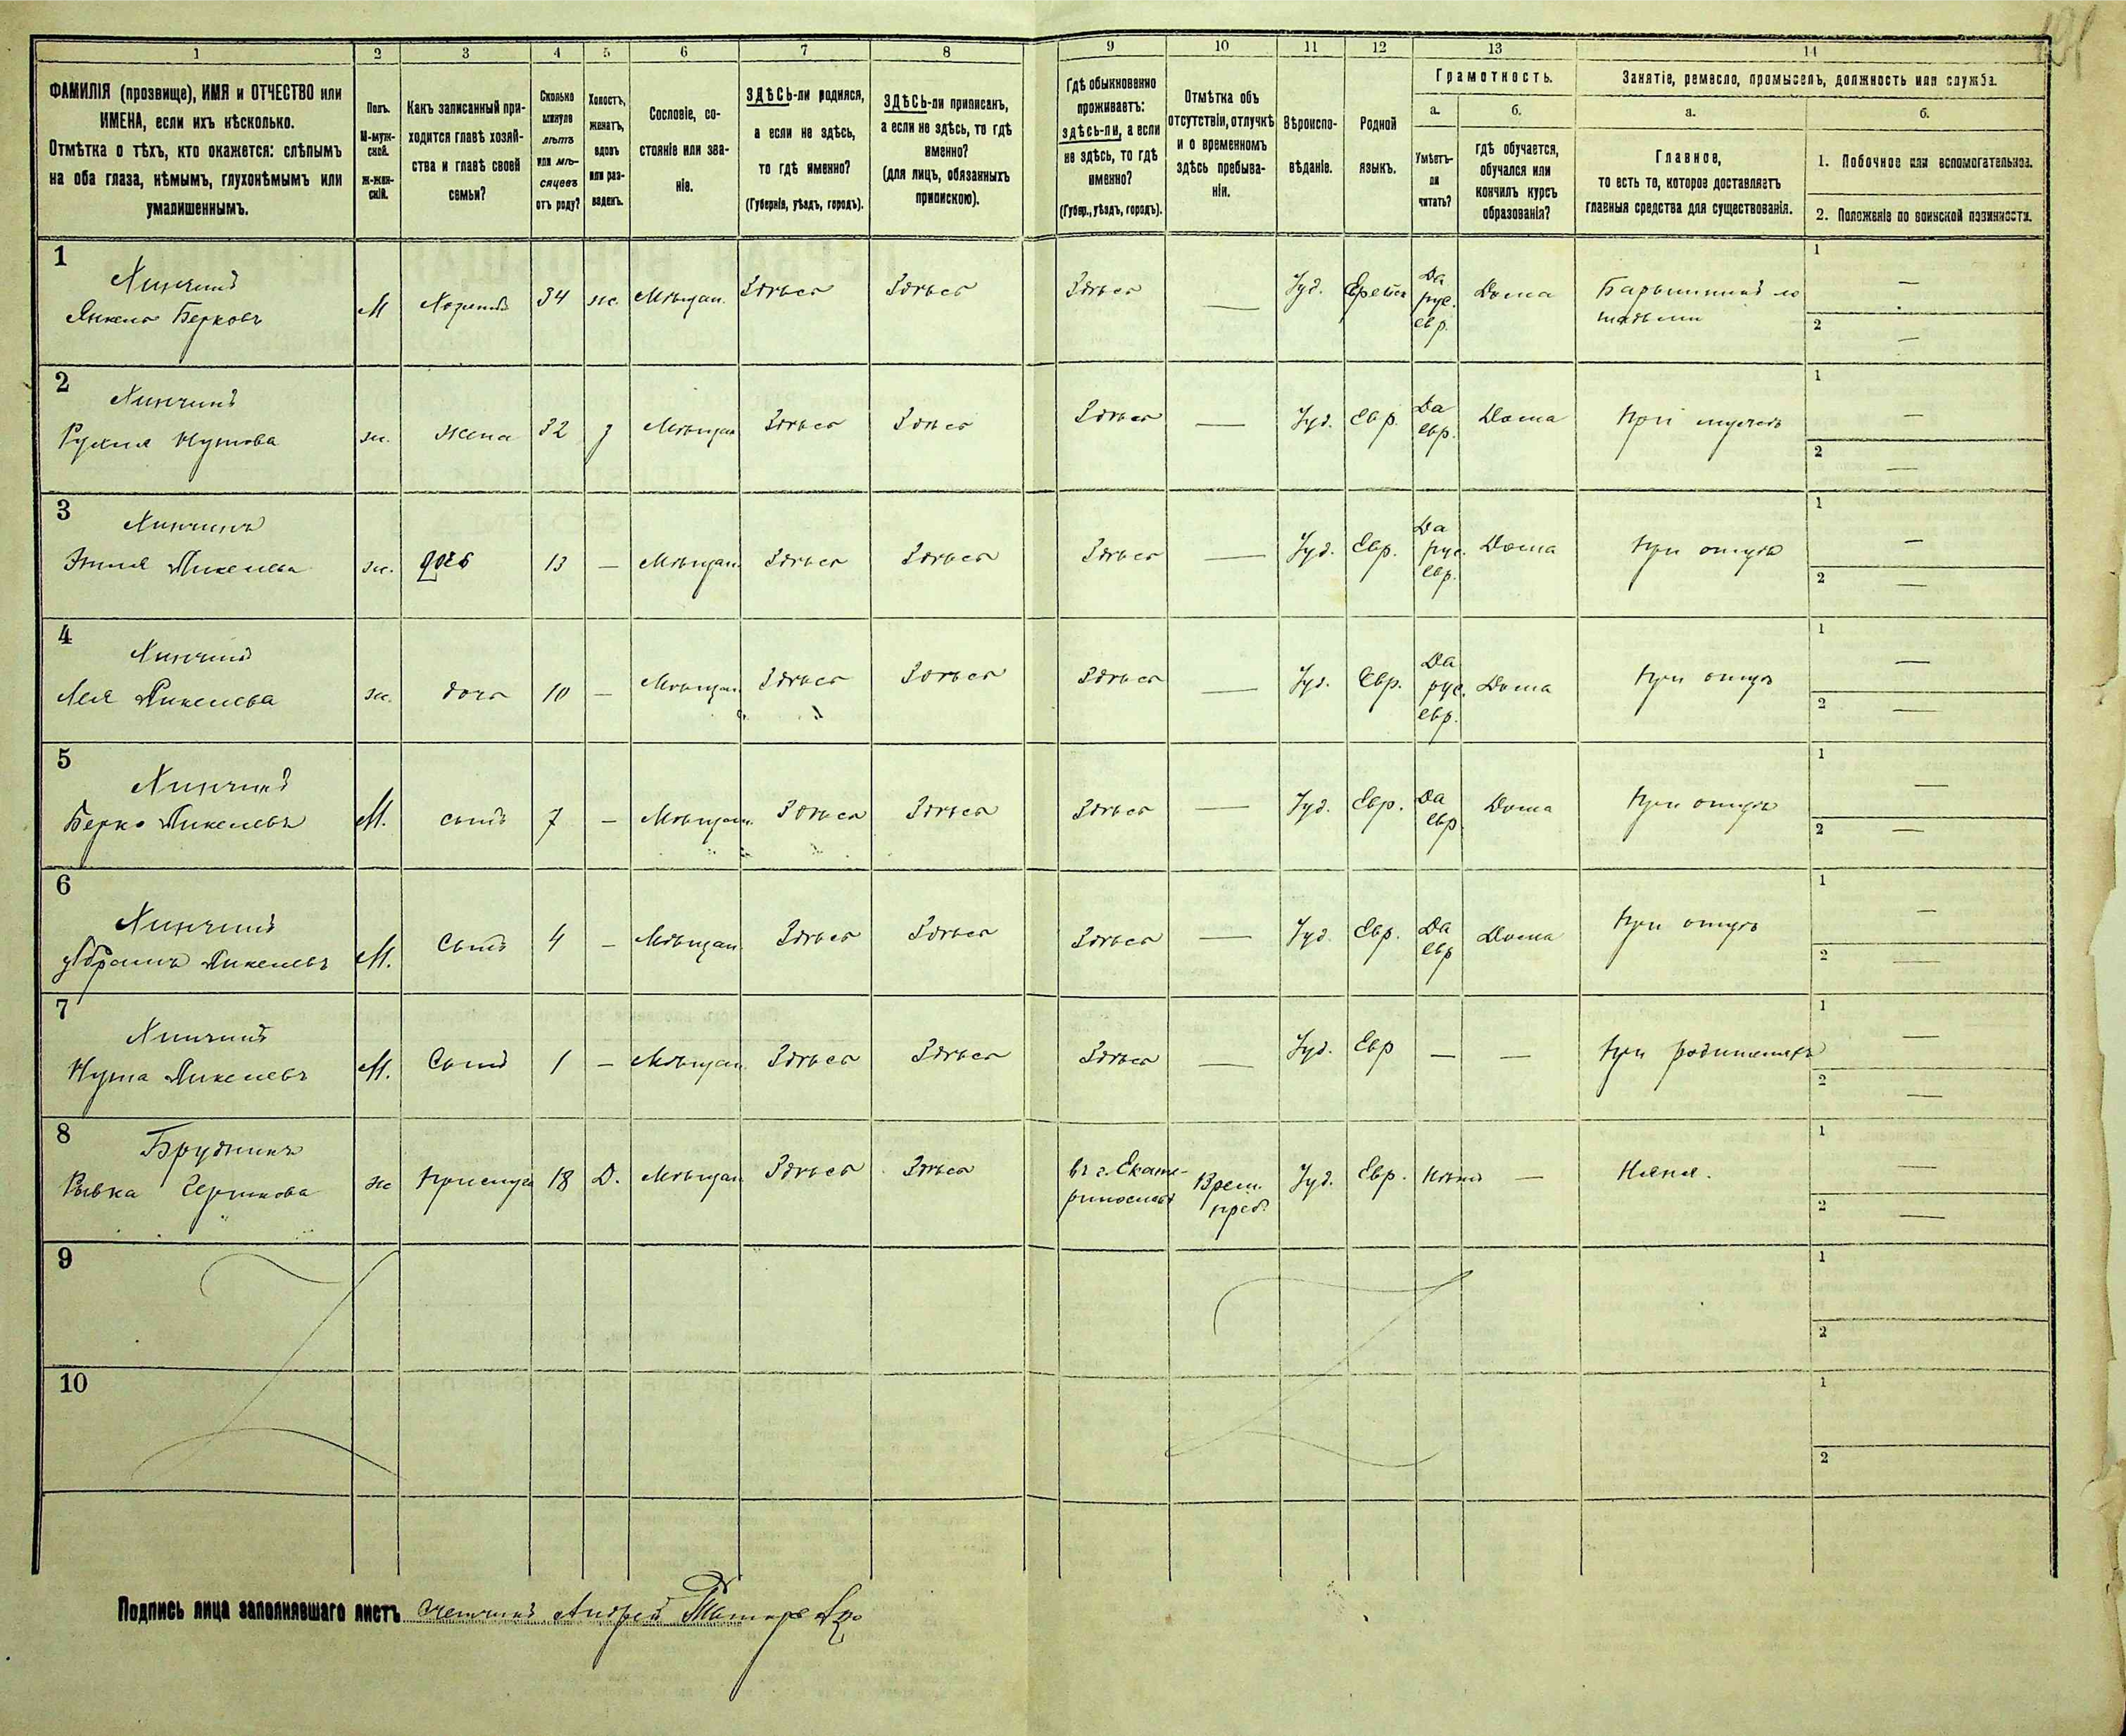 1 2 3 4 5 6 7 8 9 10 11 12 13 14
ФАМИЛІЯ (прозвище), ИМЯ и ОТЧЕСТВО или
ИМЕНА, если ихъ нѣсколько.
Отмѣтка о тѣхъ, кто окажется: слѣпымъ
на оба глаза, нѣмымъ, глухонѣмымъ или
умалишеннымъ.
Полъ.
М-муж-
ской.
Ж-жен-
скій.
Какъ записанный при-
ходится главѣ хозяй-
ства и главѣ своей
семьи?
Сколько
минуло
лѣтъ
или мѣ-
сяцевъ
отъ роду?
Холостъ,
женатъ,
вдовъ
или раз-
веденъ.
Сословіе, со-
стояніе или зва-
ніе.
ЗДѢСЬ-ли родился,
а если не здѣсь,
то гдѣ именно?
(Губернія, уѣздъ, городъ).
ЗДѢСЬ-ли приписанъ,
а если не здѣсь, то гдѣ
именно?
(для лицъ, обязанныхъ
припискою).
Гдѣ обыкновенно
проживаетъ:
здѣсь-ли, а если
не здѣсь, то гдѣ
именно?
(Губер., уѣздъ, городъ).
Отмѣтка объ
отсутствіи, отлучкѣ
и о временномъ
здѣсь пребыва-
ніи.
Вѣроиспо-
вѣданіе.
Родной
языкъ.
Грамотность.
а.
Умѣетъ-
ли
читать?
б.
гдѣ обучается,
обучался или
кончилъ курсъ
образованія?
Занятіе, ремесло, промыселъ, должность или служба.
а.
Главное,
то есть то, которое доставляетъ
главныя средства для существованія.
б.
1. Побочное или вспомогательное.
2. Положеніе по воинской повинности.
1
Хинчинъ
Янкель Берковъ
М Хозяинъ 34 ж. Мѣщан. Здѣсь Здѣсь Здѣсь — Іуд. Еврейск Да рус. евр. Дома Барышникъ ло
шадьми
1 —
2 —
2
Хинчинъ
Рухля Нутова
ж. жена 32 з Мѣщан Здѣсь Здѣсь Здѣсь — Іуд. Евр. Да евр. Дома При мужѣ
1 —
2 —
3
Хинчинъ
Янкелева
ж. дочь 13 — Мѣщан. Здѣсь Здѣсь Здѣсь — Іуд. Евр. Да рус. евр. Дома При отцѣ
1 —
2 —
4
Хинчинъ
Лея Янкелева
ж. дочь 10 — Мѣщан. Здѣсь Здѣсь Здѣсь — Іуд. Евр. Да рус. евр. Дома При отцѣ
1 —
2 —
5
Хинчинъ
Берко Янкелевъ
М. сынъ 7 — Мѣщан. Здѣсь Здѣсь Здѣсь — Іуд. Евр. Да евр. Дома При отцѣ
1 —
2 —
6
Хинчинъ
Абрамъ Янкелевъ
М. Сынъ 4 — Мѣщан. Здѣсь Здѣсь Здѣсь — Іуд. Евр. Да евр Дома При отцѣ
1 —
2 —
7
Хинчинъ
Нута Янкелевъ
М. Сынъ 1 — Мѣщан. Здѣсь Здѣсь Здѣсь — Іуд. Евр — — При родителяхъ
1 —
2 —
8
Рывка
ж Прислуга 18 Д. Мѣщан. Здѣсь Здѣсь въ г. Екате-
ринославѣ Врем.
преб. Іуд. Евр. Нѣтъ — Няня.
1 —
2 —
9
1
2
10
1
2
Подпись лица заполнявшаго листъ Андрей